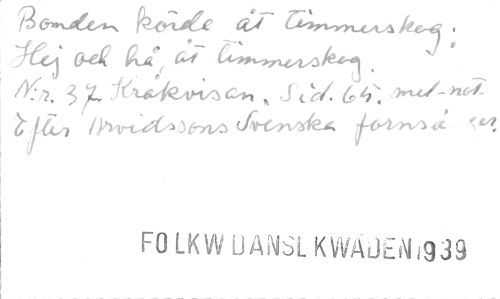 Bonden körde åt timmerskog.
Hej och hå, åt timmerskog.
N:r. 37. Kråkvisan. Sid. 65. mel-not.
Efter Arvidssons Svenska fornsånger.
FOLKW DANSLKWÄDEN 1939